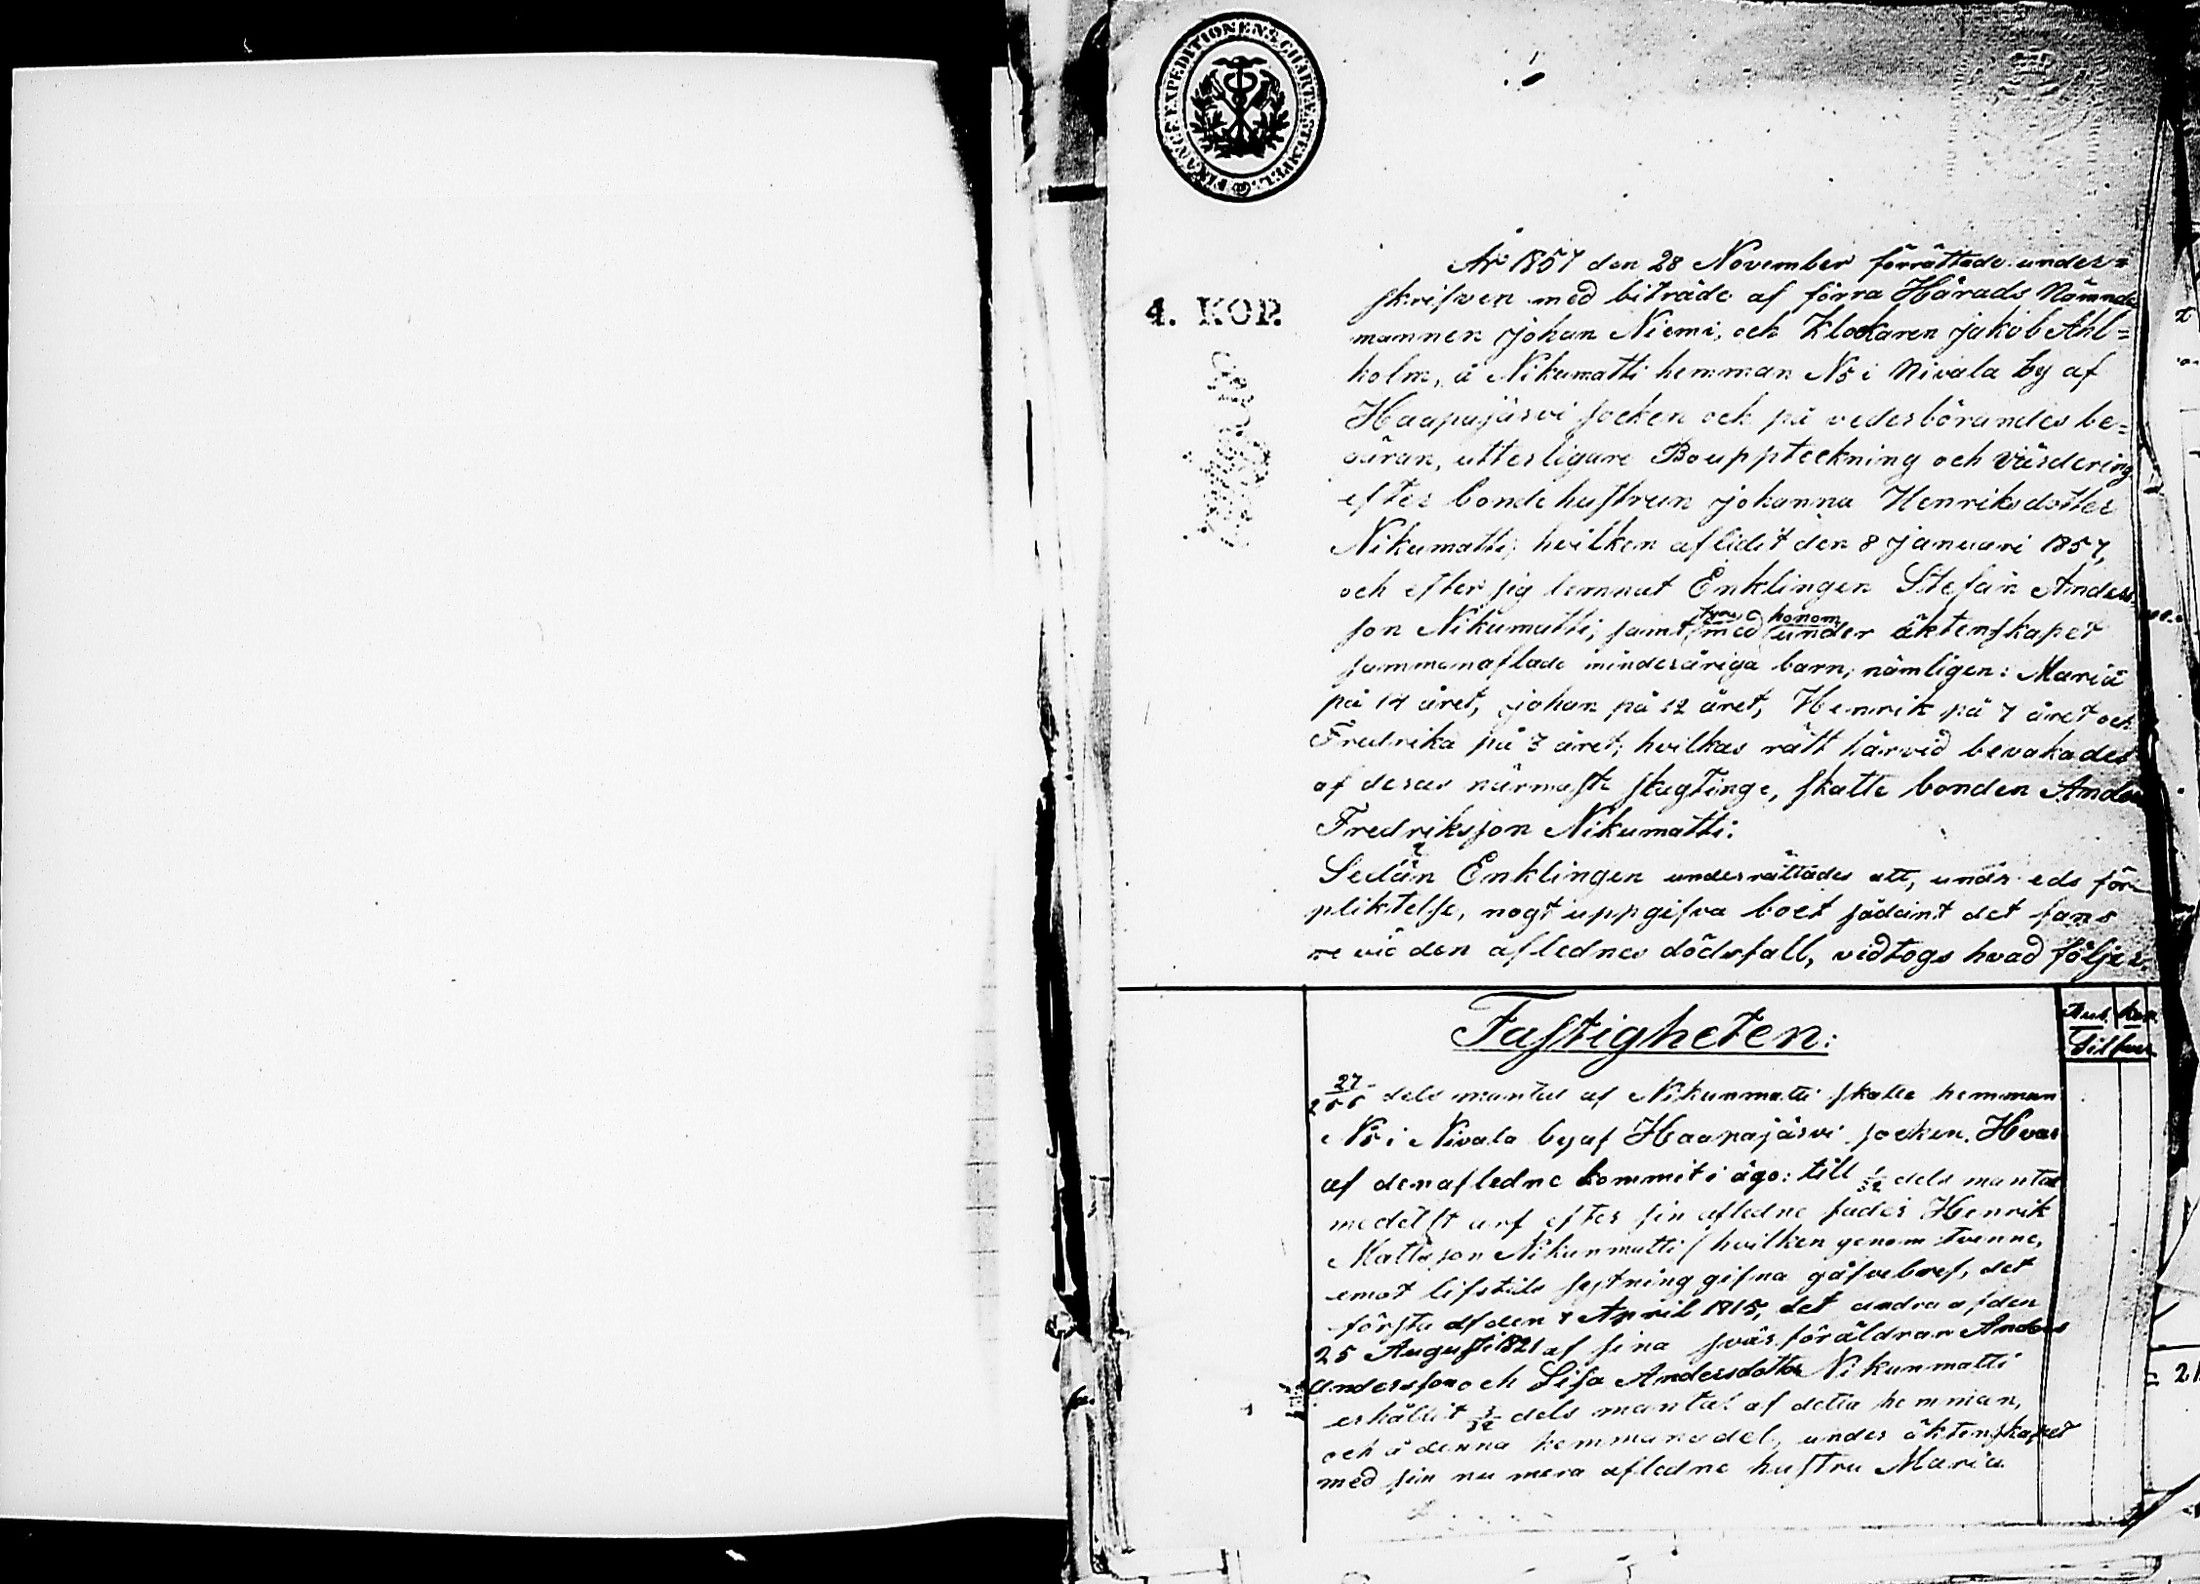 FINANCE EXPEDITIONENS CHARTÆ STEMPEL
4. KOP.
År 1857 den 28 November förrättade under=
skrifven med biträde af förra Härads Nämnde
mannen Johan Niemi, och Klockaren Jakob Ahl=
holm, å Nikumatti hemman N5 i Nivala by af
Haapajärvi socken och på vederbörandes be=
gäran, ytterligare Bouppteckning och värdering
efter bondehustrun Johanna Henriksdotter
Nikumatti, hvilken aflidit den 8 Januari 1857,
och efter sig lemnat Enklingen Stefan Anders
son Nikumatti, samt med honom under äktenskapet
sammanaflade minderåriga barn, nämligen: Maria
på 14 året, Johan på 12 året, Henrik på 7 året och
Fredrika på 3 året, hvilkas rätt härvid bevakades
af deras närmaste skygtinge, skatte bonden Anders
Fredriksson Nikumatti.
Sedan Enklingen underrättades att, under eds för
pliktelse, nogt uppgifva boet sådant det fans
vid den aflednes dödsfall, vidtogs hvad följer.
Fastigheten:
Rub. Kop.
Silfver
27 dels mantal af Nikunmatti skatte hemman
N5 i Nivala by af Haapajärvi socken. Hvar
af den afledne kommit i ägo: till 1/32 dels mantal
medelst arf efter sin afledne fader Henrik
Mattsson Nikunmatti (hvilken genom tvenne,
emot lifstids sytning gifna gåfvobref, det
första af den 8 April 1815, det andra af den
25 Augusti 1821 af sina svärföräldrar Anders
Andersson och Lisa Andersdotter Nikunmatti
erhållit dels mantal af detta hemman,
och å denna hemmansdel, under äktenskapet
med sin nu mera afledne hustru Maria